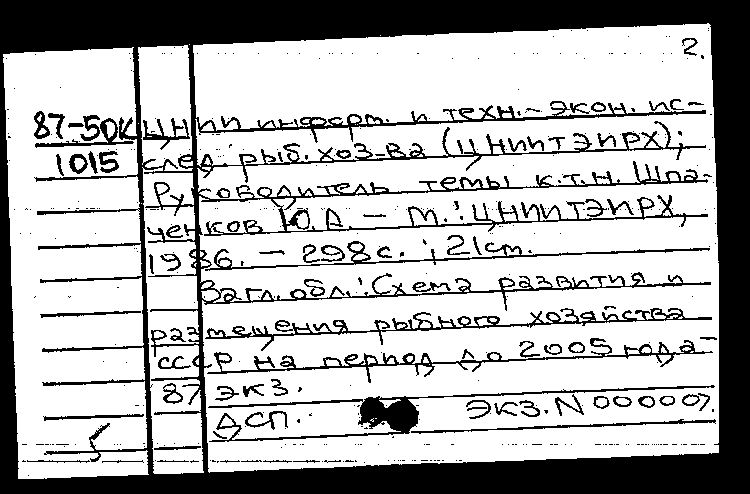 2.
87-5ДК ЦНИИ информ. и техн.-экон. ис-
1015 след. рыб. хоз-ва (ЦНИИТЭИРХ);
Руководитель темы к.т.н. Шпа-
ченков Ю.А. – М.: ЦНИИТЭИРХ,
1986. – 298с. ; 21см.
Загл. обл.: Схема развития и
размещения рыбного хозяйства
СССР на период до 2005 года-
87 экз.
ДСП. Экз. N 000007.